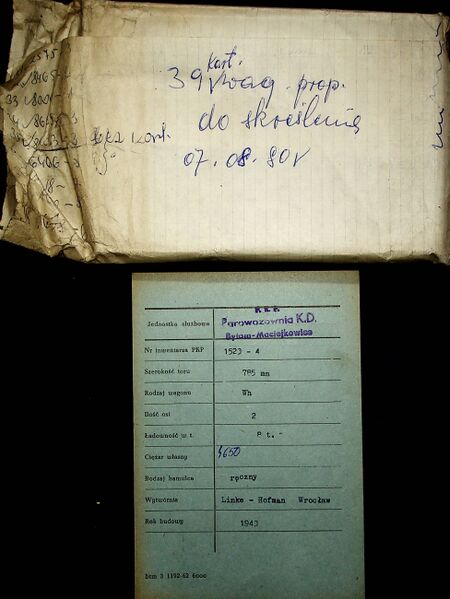 kart.
39 wag. prop.
do skreślenia
07.08.80r
kart.
P.K.P.
Jednostka służbowa Parowozownia K.D.
Bytom-Maciejkowice
Nr inwentarza PKP 1523 - 4
Szerokość toru 785 mm
Rodzaj wagonu Wh
Ilość osi 2
Ładowność w t. 8 t.-
Ciężar własny 4650
Rodzaj hamulca ręczny
Wytwórnia Linke - Hofman Wrocław
Rok budowy 1943
bcm 3 1192-62 6000